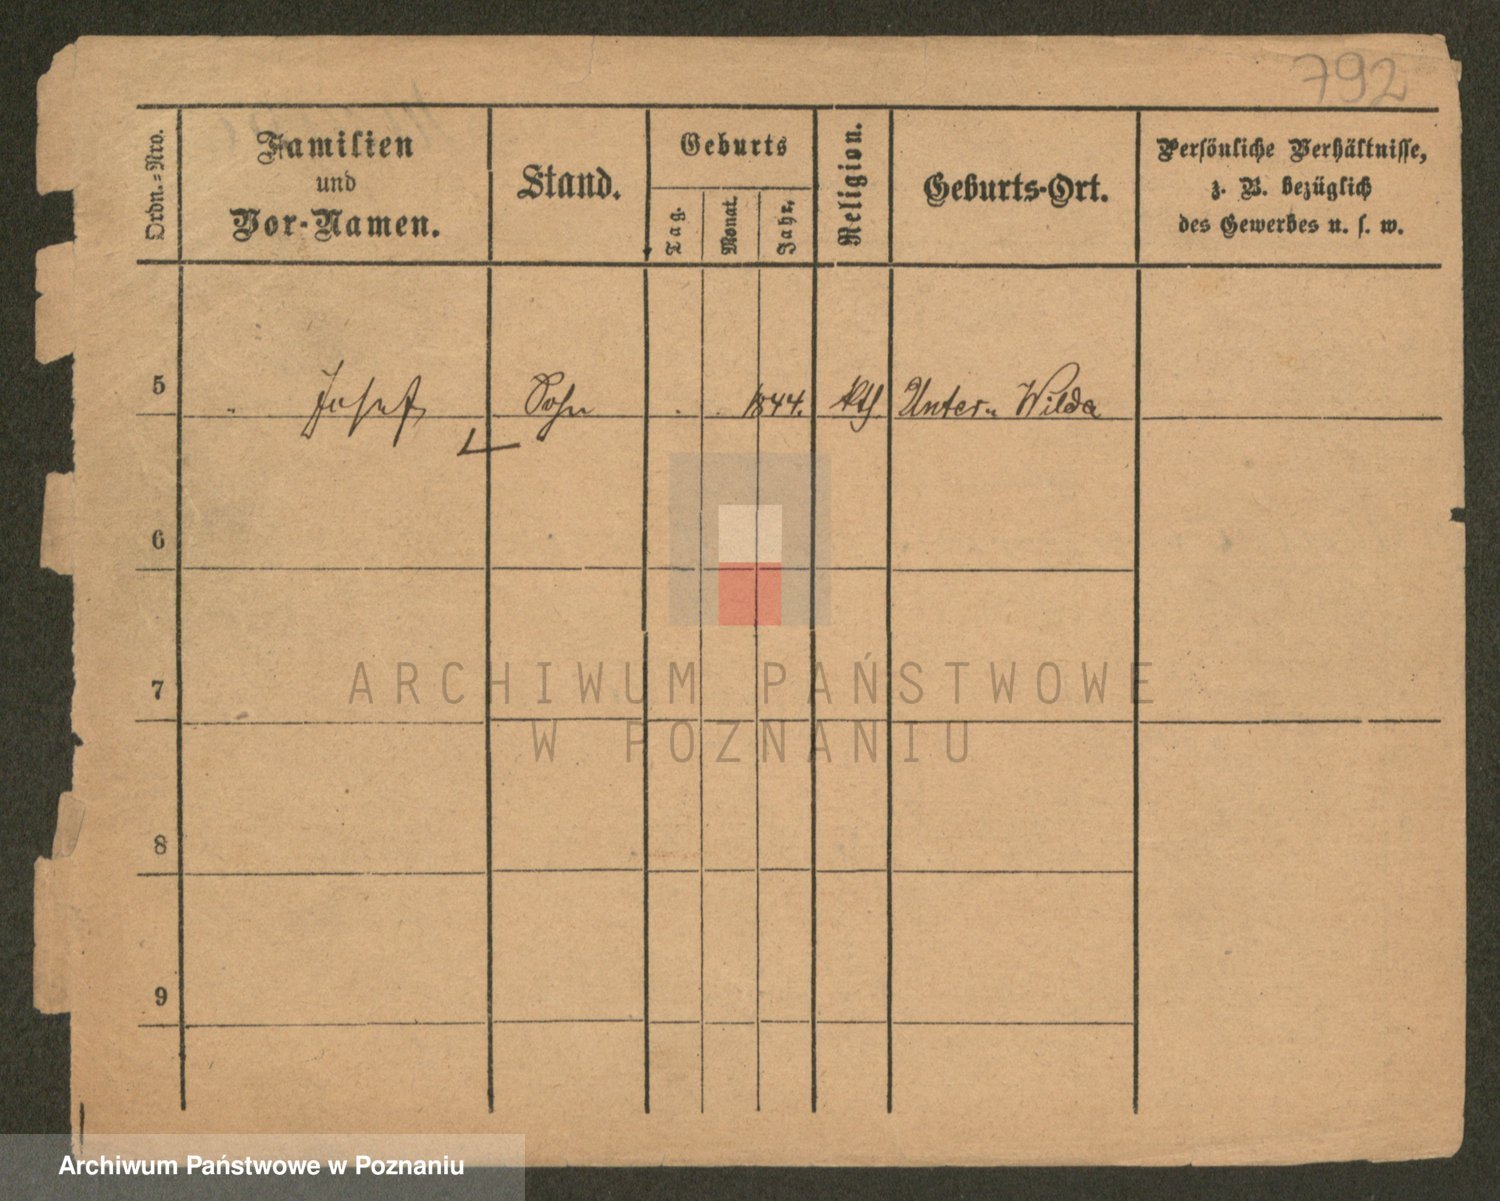 792
Ordn.-Nro.
Familien
und
Vor-Namen.
Stand.
Geburts
Tag.
Monat.
Jahr.
Religion.
Geburts-Ort.
Persönliche Verhältnisse,
z. B. bezüglich
des Gewerbes u. s. w.
5 " Josef Sohn . . 1844. kth Unter Wilda
6
7
8
9
ARCHIWUM PAŃSTWOWE
W POZNANIU
Archiwum Państwowe w Poznaniu